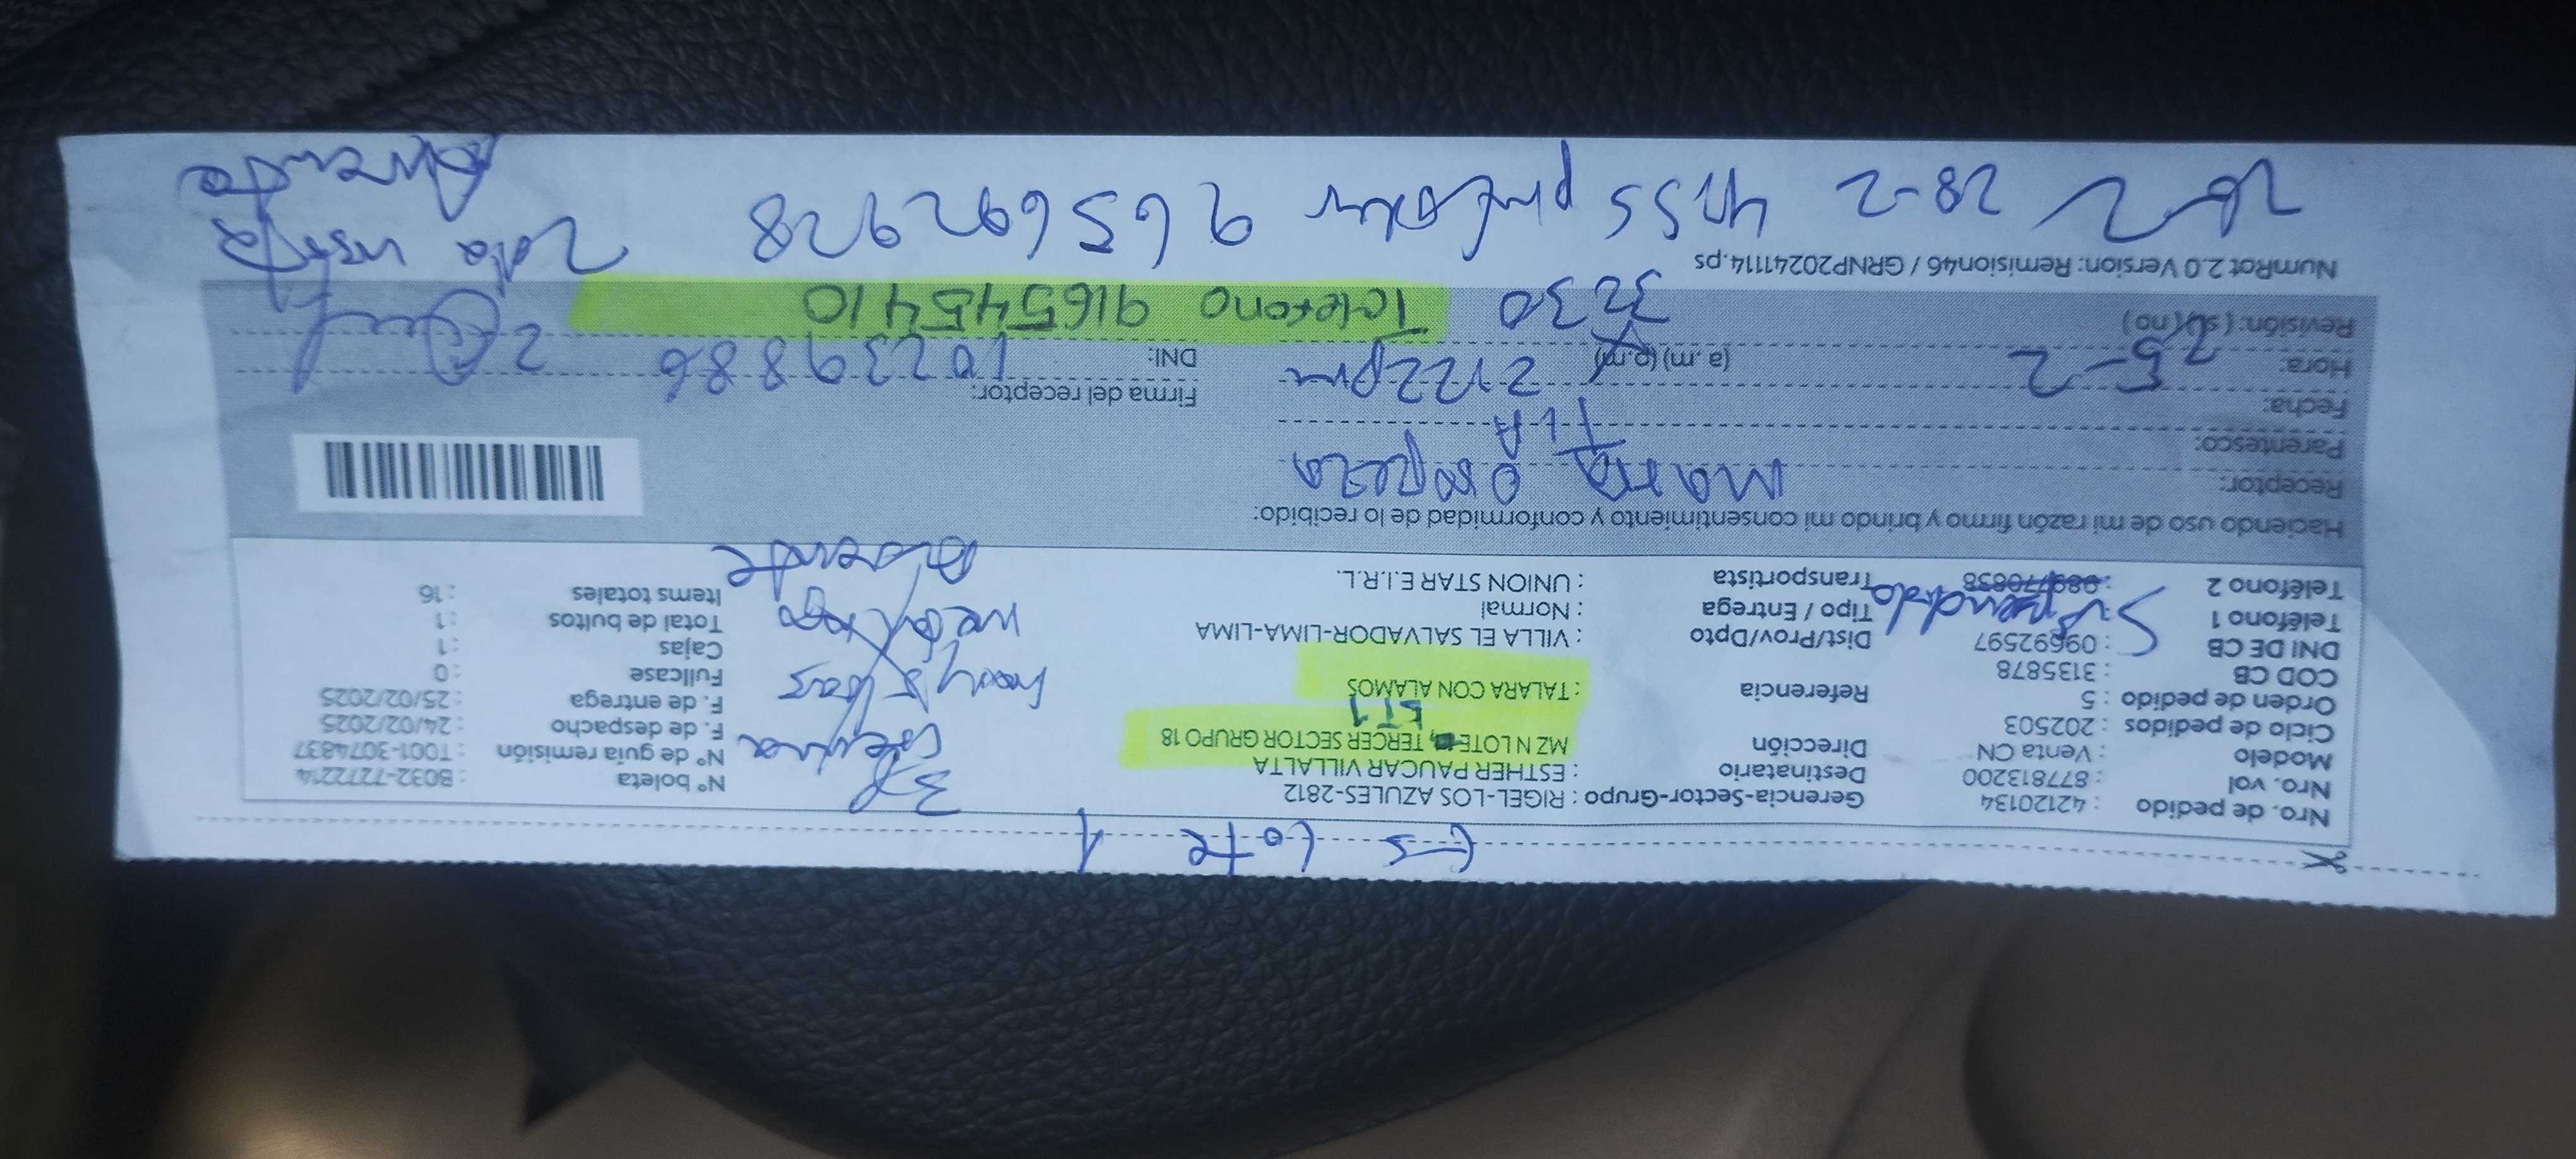 Es Lote 1
Nro. de pedido : 42120134
Nro. vol : 877813200
Modelo : Venta CN
Ciclo de pedidos : 202503
Orden de pedido : 5
COD CB : 3135878
DNI DE CB : 09692597
Teléfono 1
Teléfono 2
Suspendido
Gerencia-Sector-Grupo : RIGEL-LOS AZULES-2812
Destinatario : ESTHER PAUCAR VILLALTA
Dirección MZ N LOTE , TERCER SECTOR GRUPO 18
LT 1
Referencia : TALARA CON ALAMOS
Dist/Prov/Dpto : VILLA EL SALVADOR-LIMA-LIMA
Tipo / Entrega : Normal
Transportista : UNION STAR E.I.R.L.
3P
crema
rejas
negro
N° boleta : B032-7272214
N° de guía remisión : T001-3074837
F. de despacho : 24/02/2025
F. de entrega : 25/02/2025
Fullcase : 0
Cajas : 1
Total de bultos : 1
Items totales : 16
Haciendo uso de mi razón firmo y brindo mi consentimiento y conformidad de lo recibido:
Receptor:
Parentesco:
Fecha:
Hora: (a. m) (p.m)
Revisión: (si) (no)
25-2
TLA
2:22pm
3230
Firma del receptor:
DNI: 10239886
Telefono 916545410
NumRot 2.0 Version: Remision46 / GRNP20241114.ps
28-2 4:55 pm 965692928
2da visita